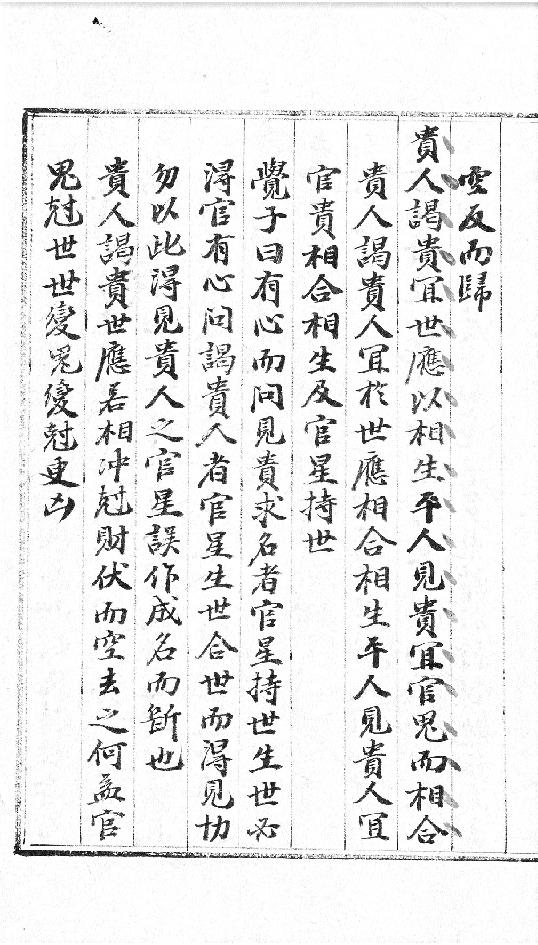 空反而歸
貴人謁貴宜世應以相生平人見貴宜官鬼而相合
貴人謁貴人宜於世應相合相生平人見貴人宜
官貴相合相生及官星持世
覺子曰有心而問見貴求名者官星持世生世必
得官有心問謁貴人者官星生世合世而得見切
勿以此得見貴人之官星誤作成名而斷也
貴人謁貴世應若相冲尅財伏而空去之何益官
鬼尅世世變鬼變尅更凶